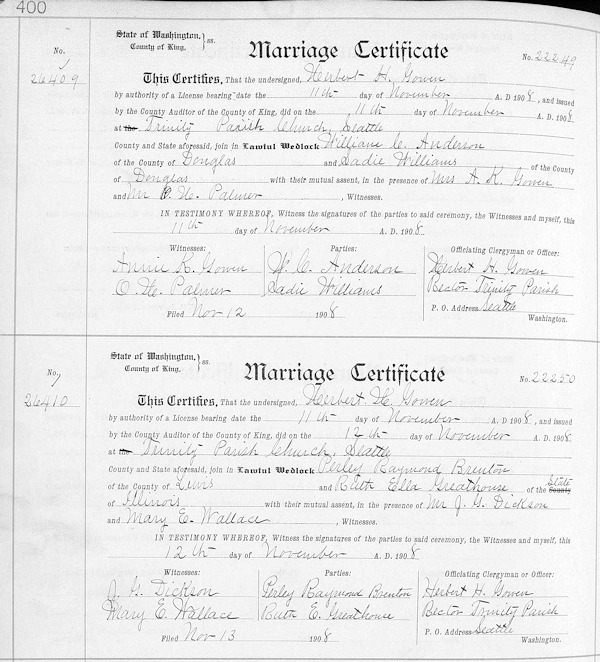 400
State of Washington, } ss.
County of King,
No.
26409
Marriage Certificate
No. 22249
This Certifies, That the undersigned, Herbert H. Gowen
by authority of a License bearing date the 11th day of November A. D 1908, and issued
by the County Auditor of the County of King, did on the 11th day of November A. D. 1908
at the Trinity Parish Church, Seattle
County and State aforesaid, join in Lawful Wedlock William C. Anderson
of the County of Douglas and Sadie Williams of the County
of Douglas with their mutual assent, in the presence of Mrs A. K. Gowen
and Mr O. H. Palmer, Witnesses.
IN TESTIMONY WHEREOF, Witness the signatures of the parties to said ceremony, the Witnesses and myself, this
11th day of November A. D. 1908.
Witnesses: Parties: Officiating Clergyman or Officer:
Annie K. Gowen W. C. Anderson Herbert H. Gowen
O. H. Palmer Sadie Williams Rector Trinity Parish
P. O. Address Seattle
Filed Nov 12 1908 Washington.
State of Washington, } ss.
County of King,
No.
26410
Marriage Certificate
No. 22250
This Certifies, That the undersigned, Herbert H. Gowen
by authority of a License bearing date the 11th day of November A. D 1908, and issued
by the County Auditor of the County of King, did on the 12th day of November A. D. 1908.
at the Trinity Parish Church, Seattle
County and State aforesaid, join in Lawful Wedlock Perley Raymond Brenton
of the County of Lewis and Ruth Ella Greathouse of the County State
of Illinois with their mutual assent, in the presence of Mr J. G. Dickson
and Mary E. Wallace, Witnesses.
IN TESTIMONY WHEREOF, Witness the signatures of the parties to said ceremony, the Witnesses and myself, this
12th day of November A. D. 1908
Witnesses: Parties: Officiating Clergyman or Officer:
J. G. Dickson Perley Raymond Brenton Herbert H. Gowen
Mary E. Wallace Ruth E. Greathouse Rector Trinity Parish
P. O. Address Seattle
Filed Nov 13 1908 Washington.